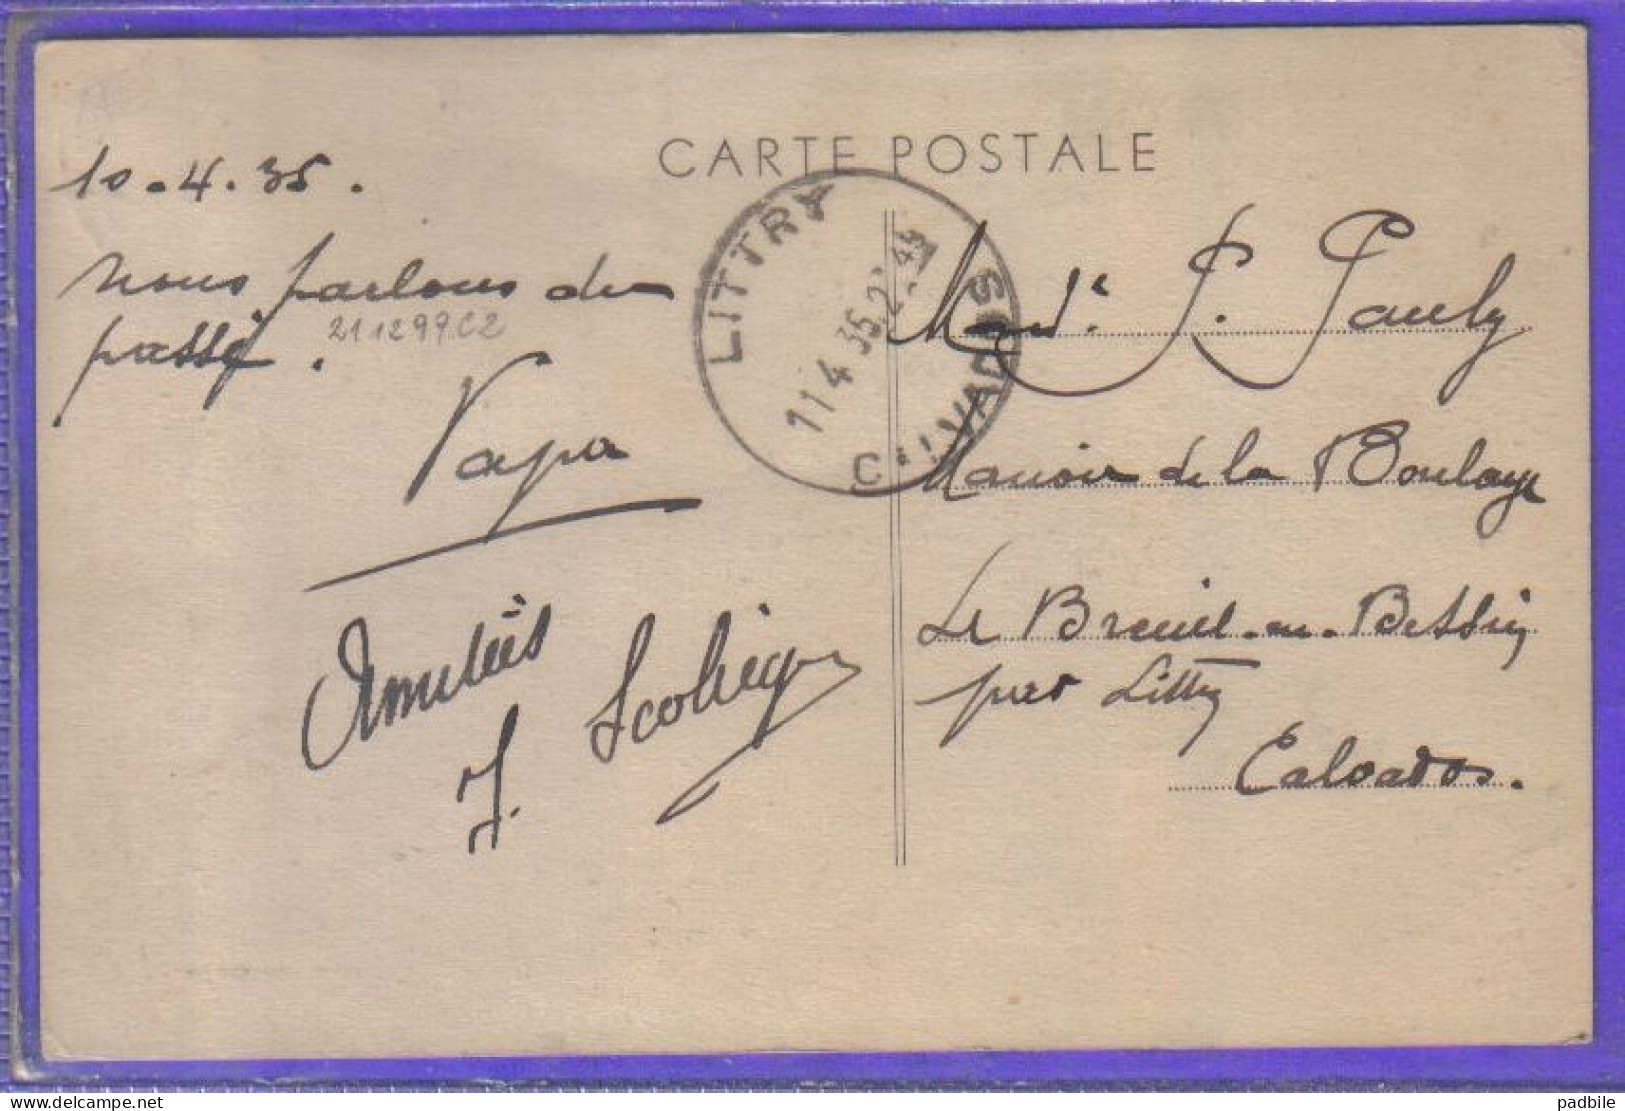 CARTE POSTALE
10.4.35.
nous parlons du
passé.
211299C2
Papa
Amitiés
J.
LITTRY
11 4 35
CALVADOS
P. Pauly
Manoir de la Boulaye
Le Breuil-en-Bessin
par Littry
Calvados.
delcampe.net
padbile